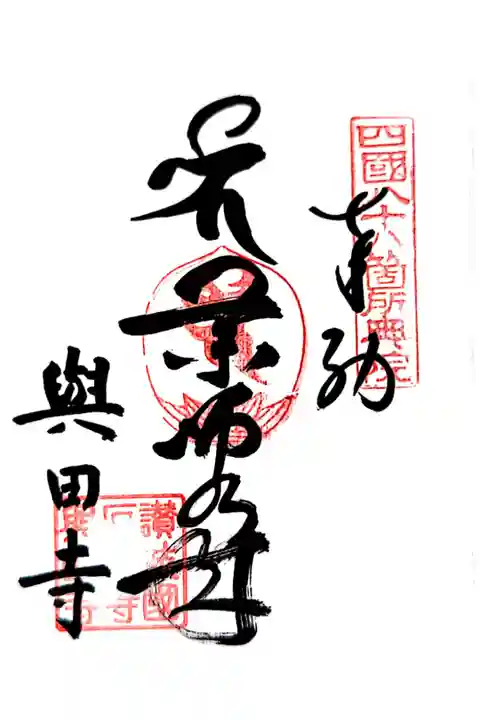 四國八十八箇所奥院
奉納
薬師如来
與田寺
讃岐國
與田寺